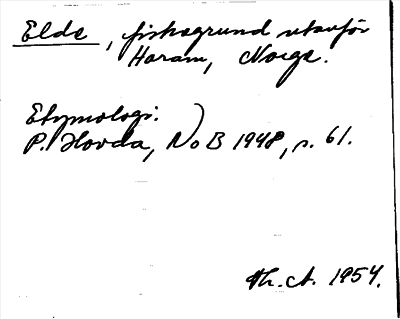 Elde, fiskegrund utanför
Haram, Norge.
Etymologi:
P. Hovda, NoB 1948, s. 61.
Th. A. 1954.